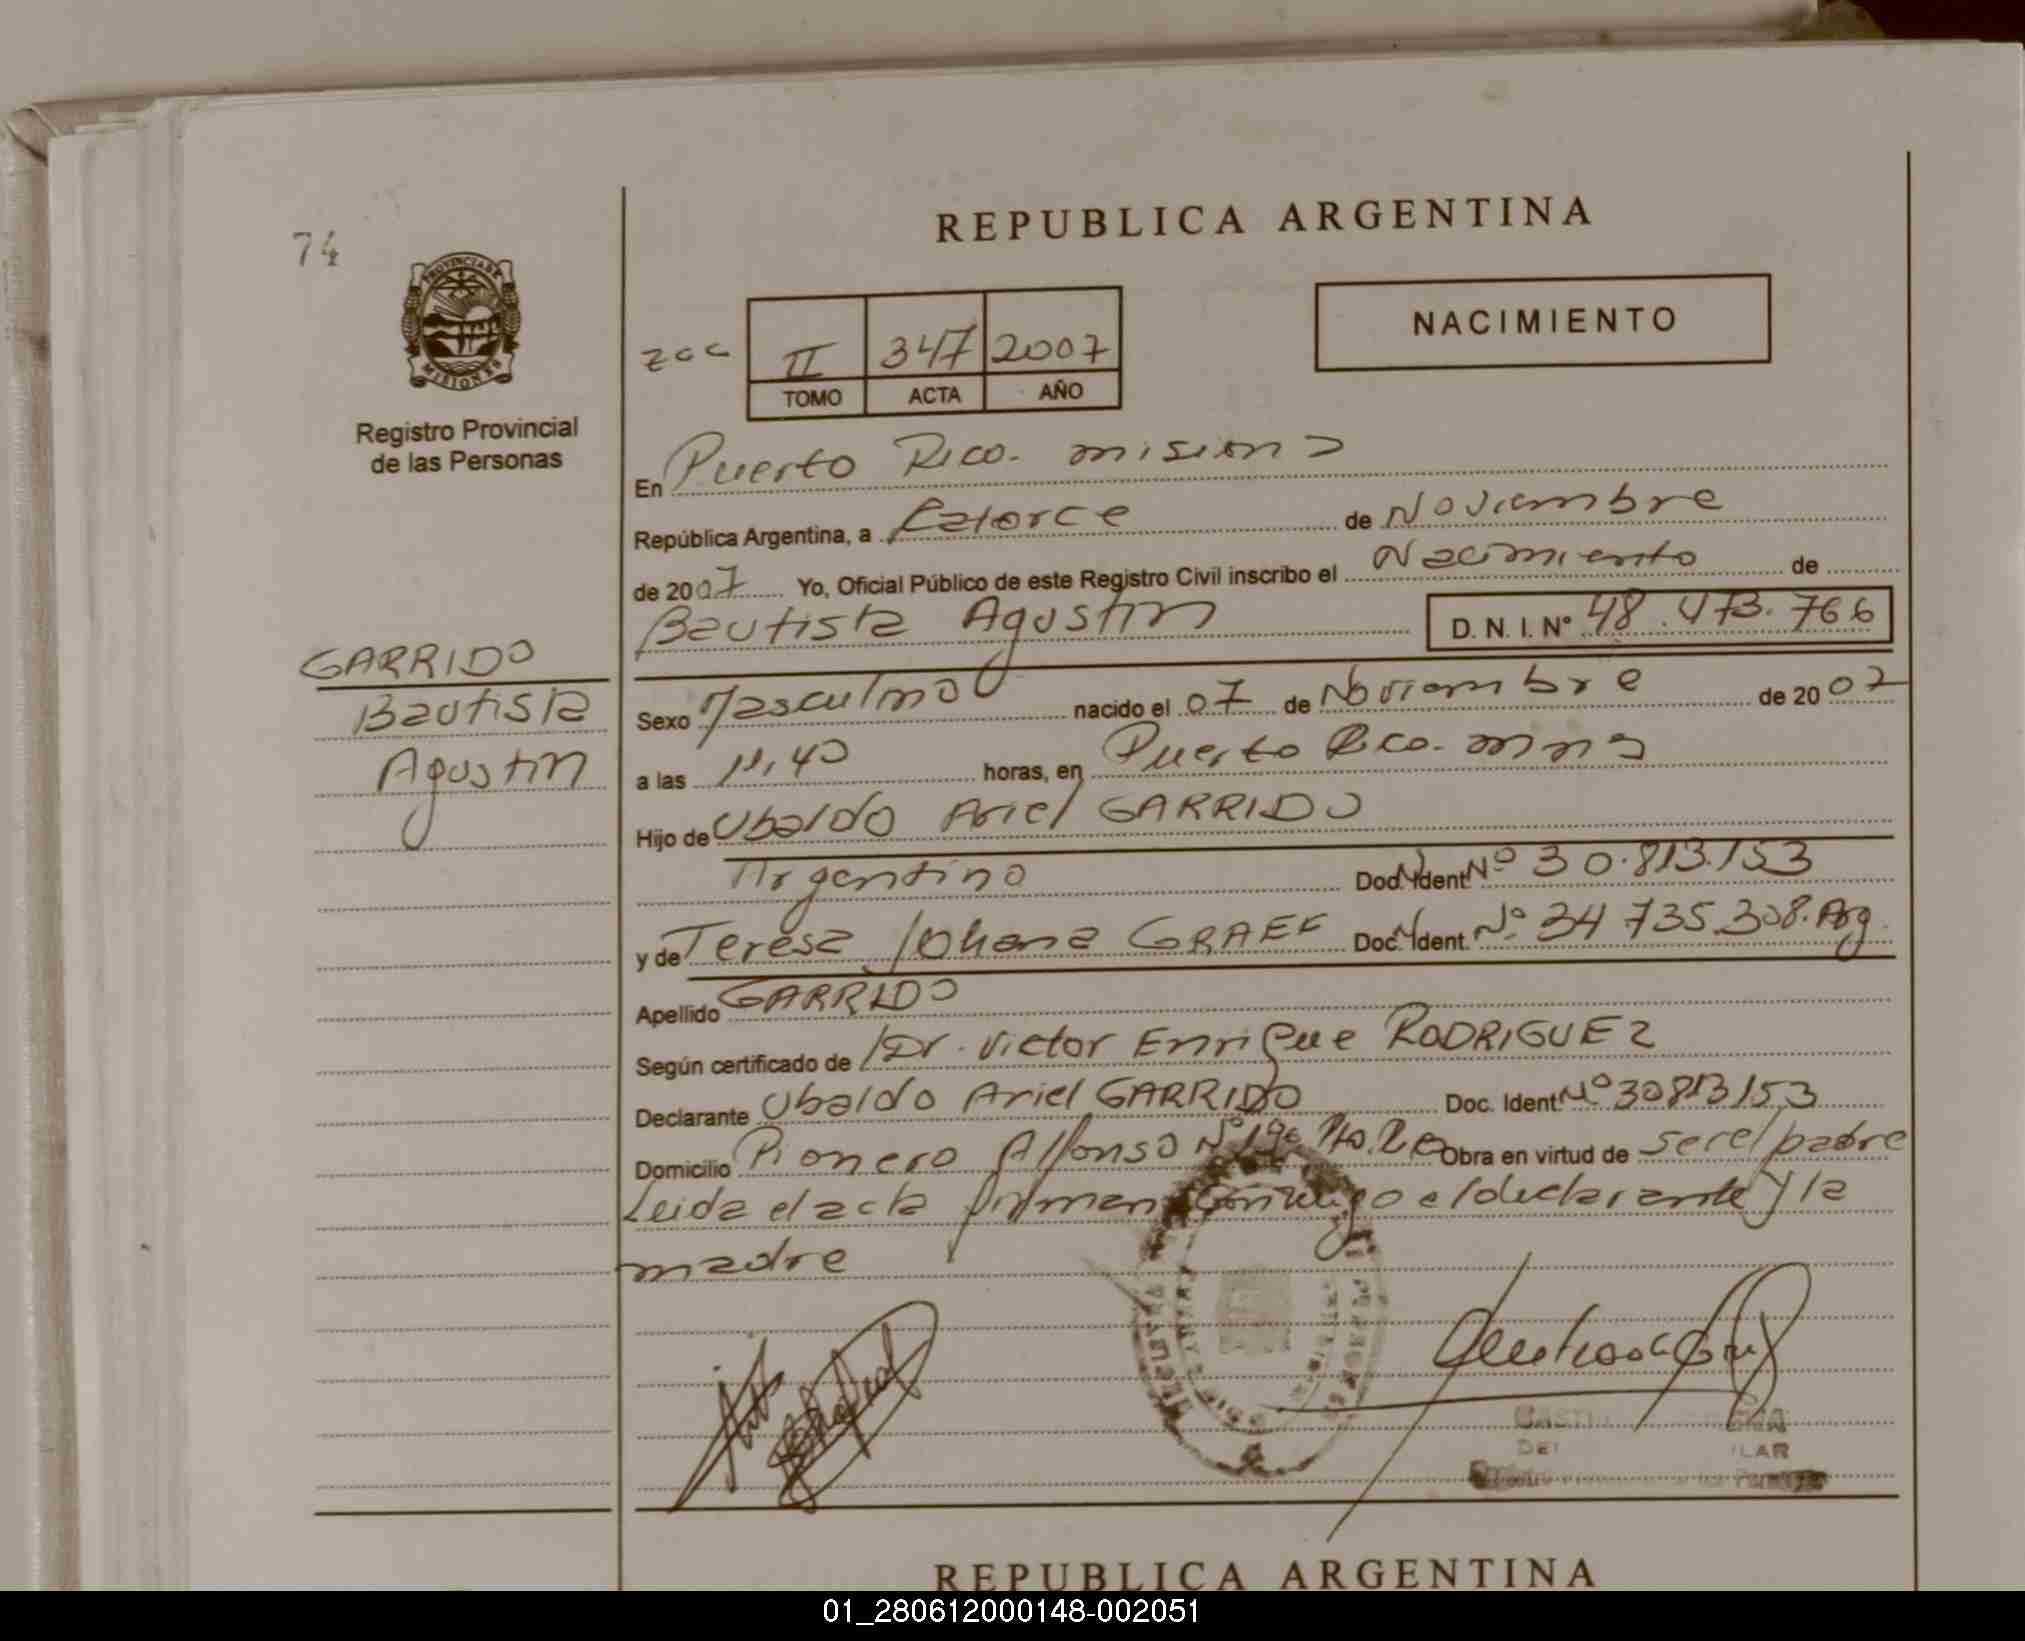 74
PROVINCIA DE
MISIONES
Registro Provincial
de las Personas
REPUBLICA ARGENTINA
NACIMIENTO
II 347 2007
TOMO ACTA AÑO
En Puerto Rico. misiones
República Argentina, a Catorce de Noviembre
de 2007 Yo, Oficial Público de este Registro Civil inscribo el Nacimiento de
Bautista Agustin D. N. I. Nº 48.473.766
GARRIDO
Bautista
Agustin
Sexo Masculino nacido el 07 de Noviembre de 2007
a las 11,40 horas, en Puerto Rico. mnes
Hijo de Ubaldo Ariel GARRIDO
Argentino Doc. Ident. Nº 30.813.153
y de Teresa Johana GRAEF Doc. Ident. Nº 34 735.308. Arg
Apellido GARRIDO
Según certificado de Dr. Victor Enrique RODRIGUEZ
Declarante Ubaldo Ariel GARRIDO Doc. Ident. Nº 30813153
Domicilio Pionero Alfonso Obra en virtud de ser el padre
Leida el acta firman conmigo el declarante y la
madre
REPUBLICA ARGENTINA
01_280612000148-002051